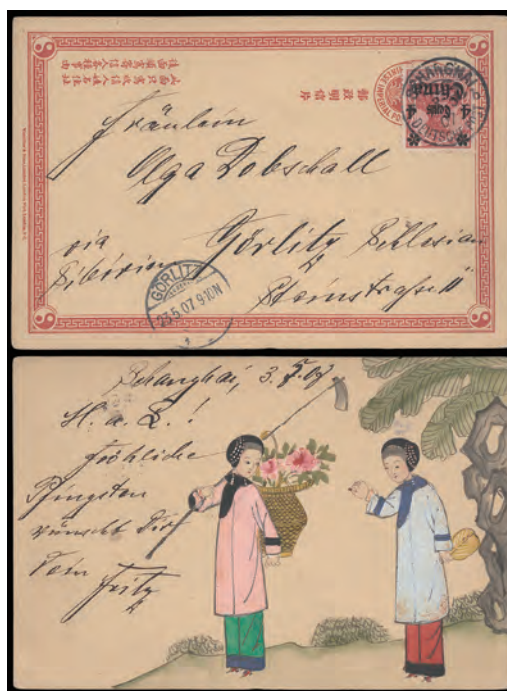 郵政明信片
SHANGHAI
China
4 4
Fräulein
Olga Dobschall
via Görlitz Schlesien
Sibirien
Steinstrasse
GÖRLITZ
23.5.07.9-10N
Schanghai, 3.5.07
H. a. L.!
Fröhliche
Pfingsten
wünscht Dir
Dein
Fritz